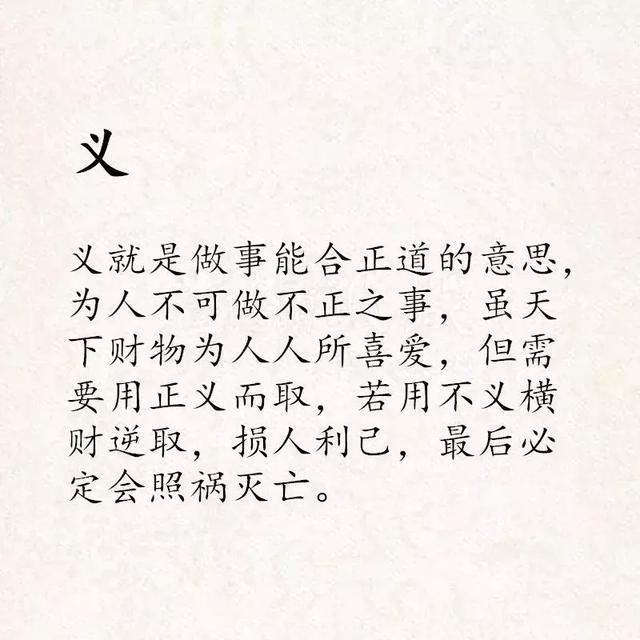 义
义就是做事能合正道的意思，
为人不可做不正之事，虽天
下财物为人人所喜爱，但需
要用正义而取，若用不义横
财逆取，损人利己，最后必
定会照祸灭亡。